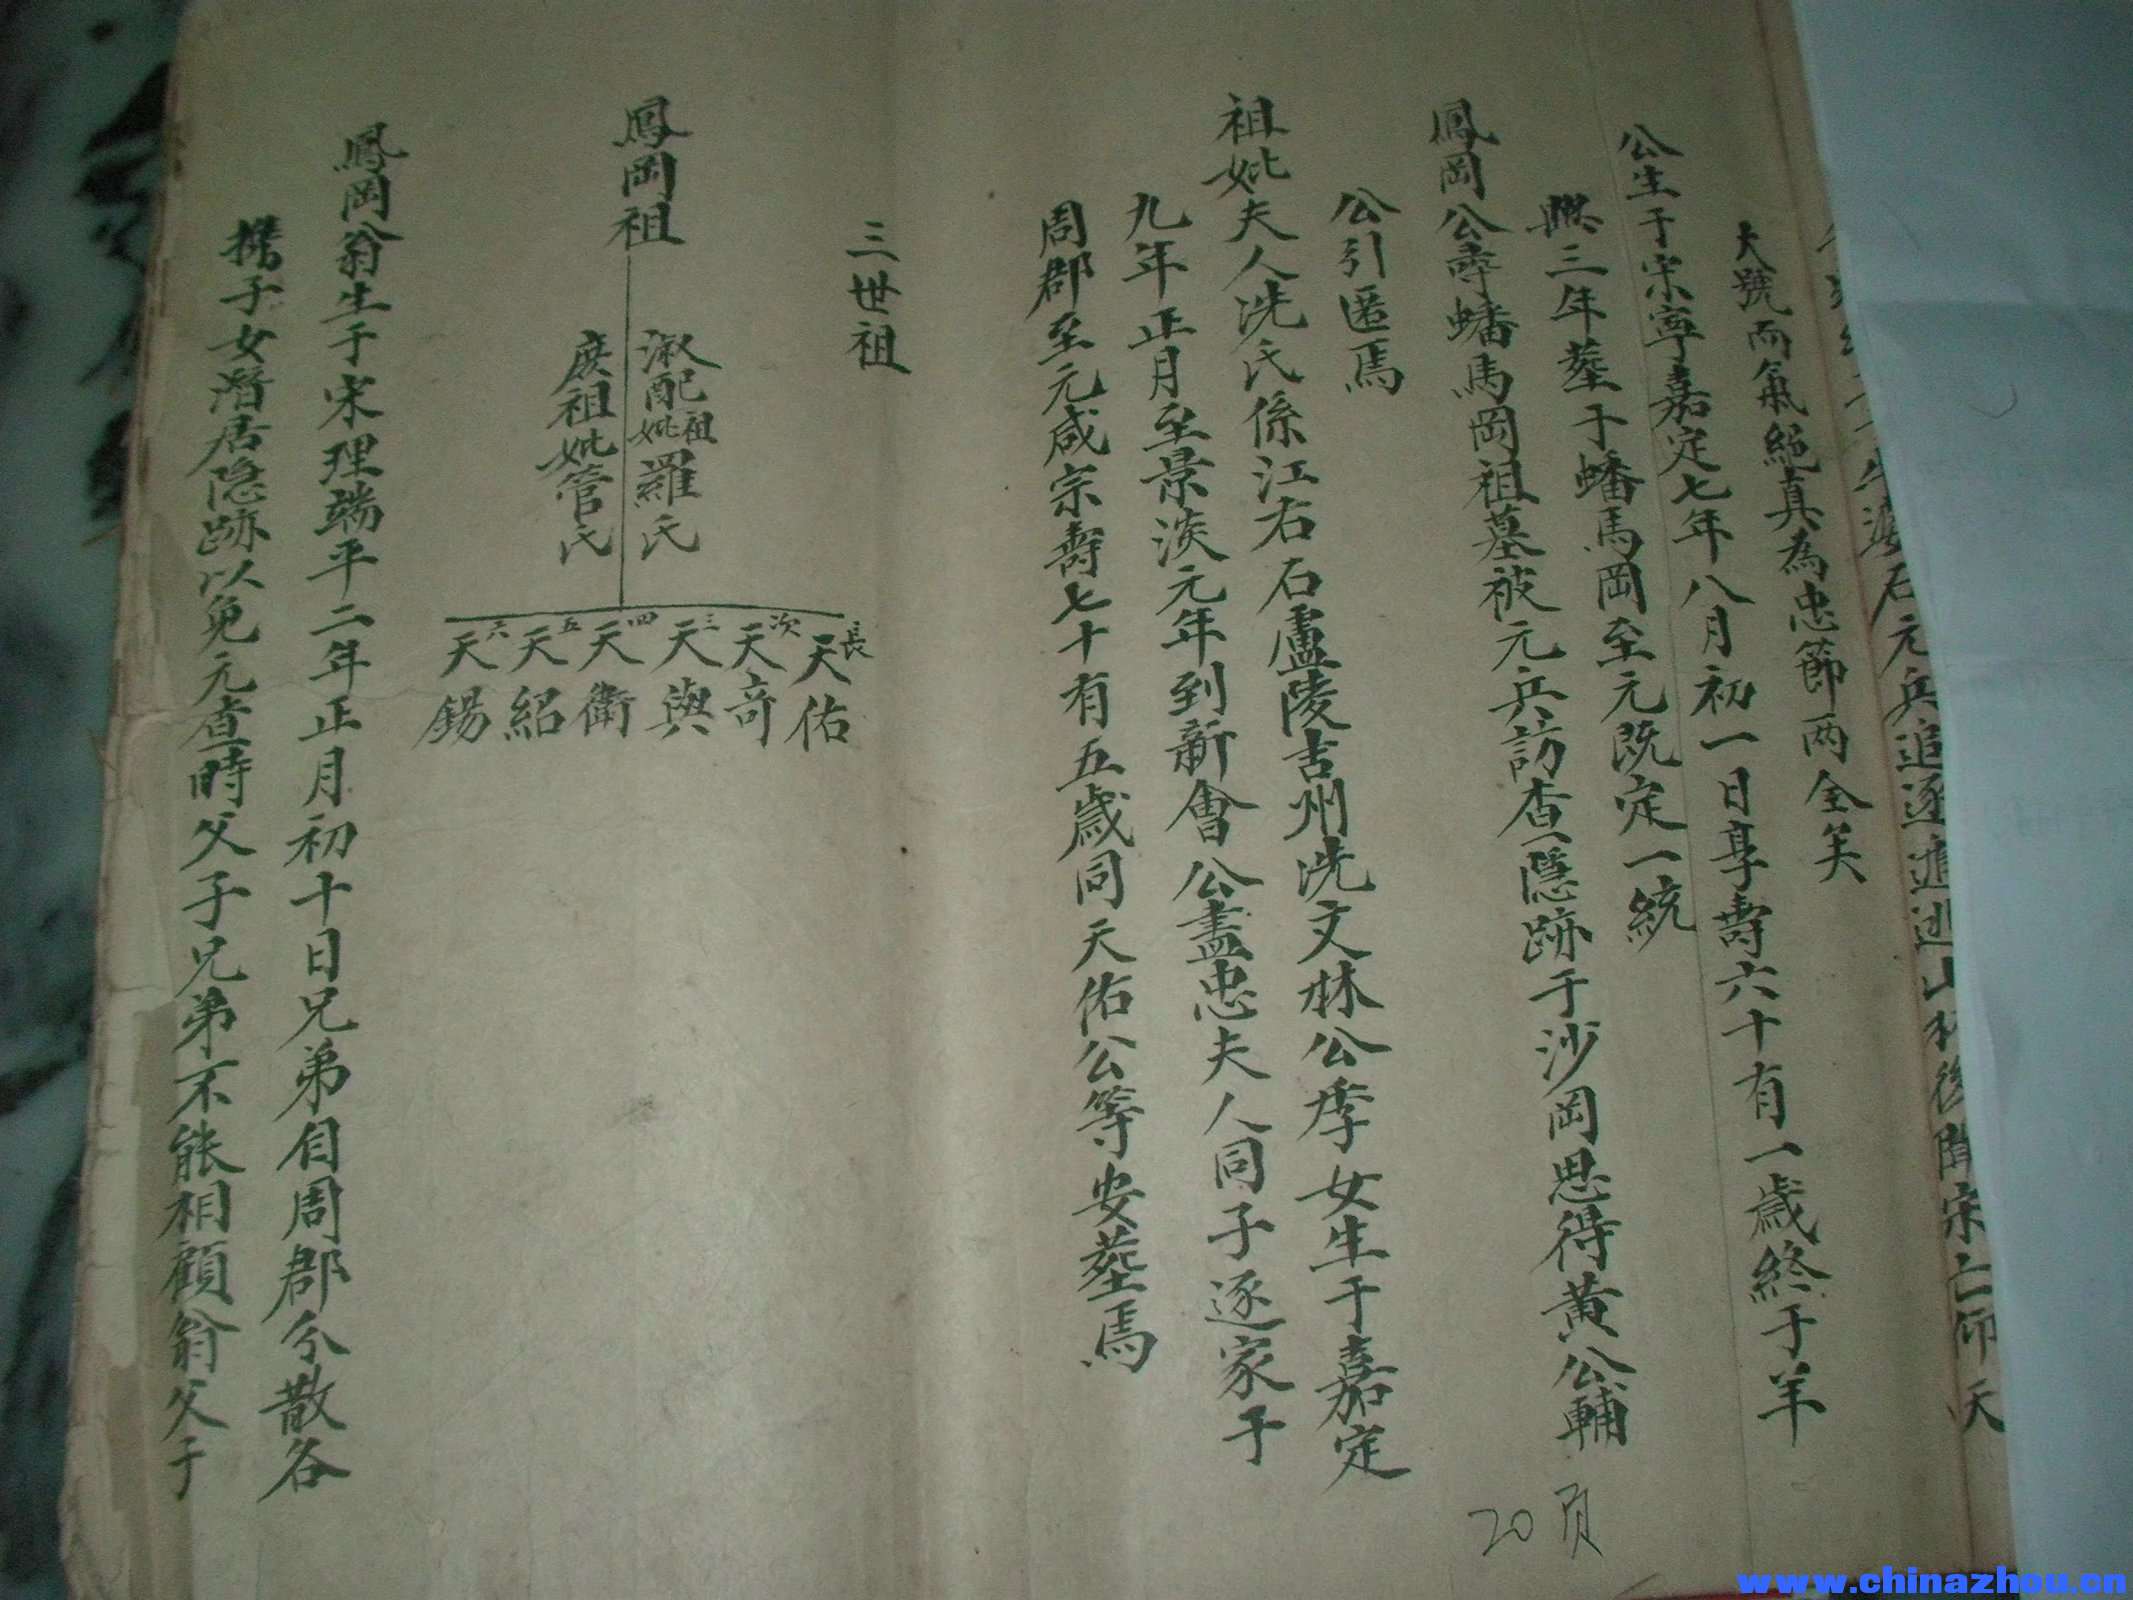 石元兵追逐進逃山林後聞宋亡仰天
大號而氣絕真為忠節兩全矣
公生于宋寧嘉定七年八月初一日享壽六十有一歲終于羊
興三年葬于蟠馬岡至元既定一統
鳳岡公尋蟠馬岡祖墓被元兵訪查隱跡于沙岡思得黃公輔
公引匿焉
祖妣夫人冼氏係江右石盧陵吉州冼文林公季女生于嘉定
九年正月至景淡元年到新會公盡忠夫人同子逐家于
周郡至元咸宗壽七十有五歲同天佑公等安葬焉
三世祖
鳳岡祖
淑配祖妣羅氏
庶祖妣管氏
長天佑
次天奇
三天與
四天衛
五天紹
六天錫
鳳岡翁生于宋理端平二年正月初十日兄弟自周郡分散各
攜子女潛居隐跡以免元查時父子兄弟不能相顧翁父于
20页
www.chinazhou.cn